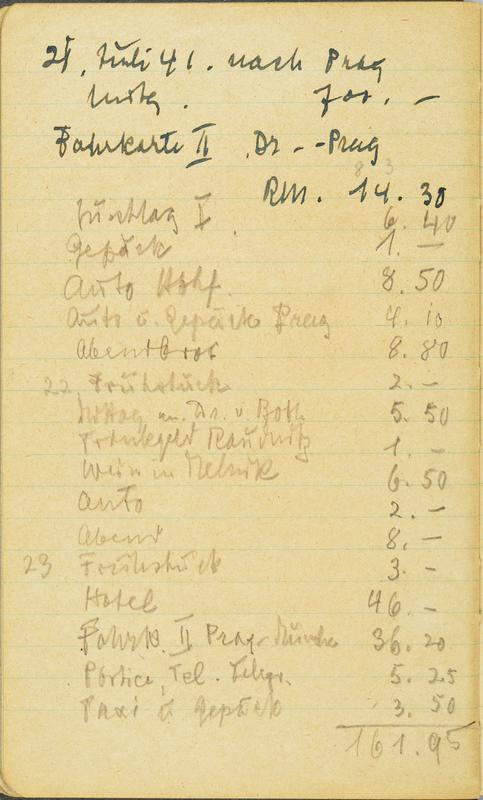 21. Juli 41. nach Prag
700. –
Fahrkarte II Dr - - Prag
RM. 14. 30
Zuschlag I 6. 40
Gepäck 1. –
Auto Hbhf. 8. 50
Auto u. Gepäck Prag 4. 10
Abendbrot 8. 80
22 Frühstück 2. –
Mittag m. Dr. v. Both 5. 50
Trinkgeld Raudnitz 1. –
Wein in Melnik 6. 50
Auto 2. –
Abend 8. –
23 Frühstück 3. –
Hotel 46 –
Fahrk. II Prag - 36. 20
Portier, Tel. Telegr. 5. 25
Taxi u Gepäck 3. 50
161. 95